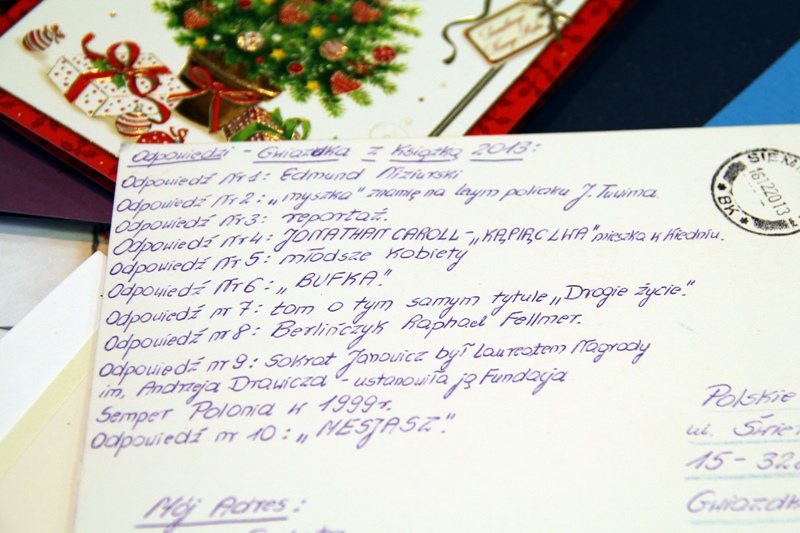 Odpowiedzi - Gwiazdka z Książką 2013:
Odpowiedź Nr 1: Edmund Niziurski
Odpowiedź Nr 2: „myszka" znamię na lewym policzku J. Tuwima.
Odpowiedź Nr 3: reportaż.
Odpowiedź Nr 4: JONATHAN CAROLL - „KĄPIĄC LWA" mieszka w Wiedniu.
Odpowiedź Nr 5: młodsze kobiety
Odpowiedź Nr 6: „BUFKA."
Odpowiedź nr 7: tom o tym samym tytule „Drogie życie."
Odpowiedź nr 8: Berlińczyk Raphael Fellmer.
Odpowiedź nr 9: Sokrat Janowicz był laureatem Nagrody
im. Andrzeja Drawicza - ustanowiła ją Fundacja
Semper Polonia w 1999r.
Odpowiedź nr 10: „MESJASZ".
Mój Adres:
Polskie
ul. Świer
15-328
Gwiazdk
SIEM
16122013
BK